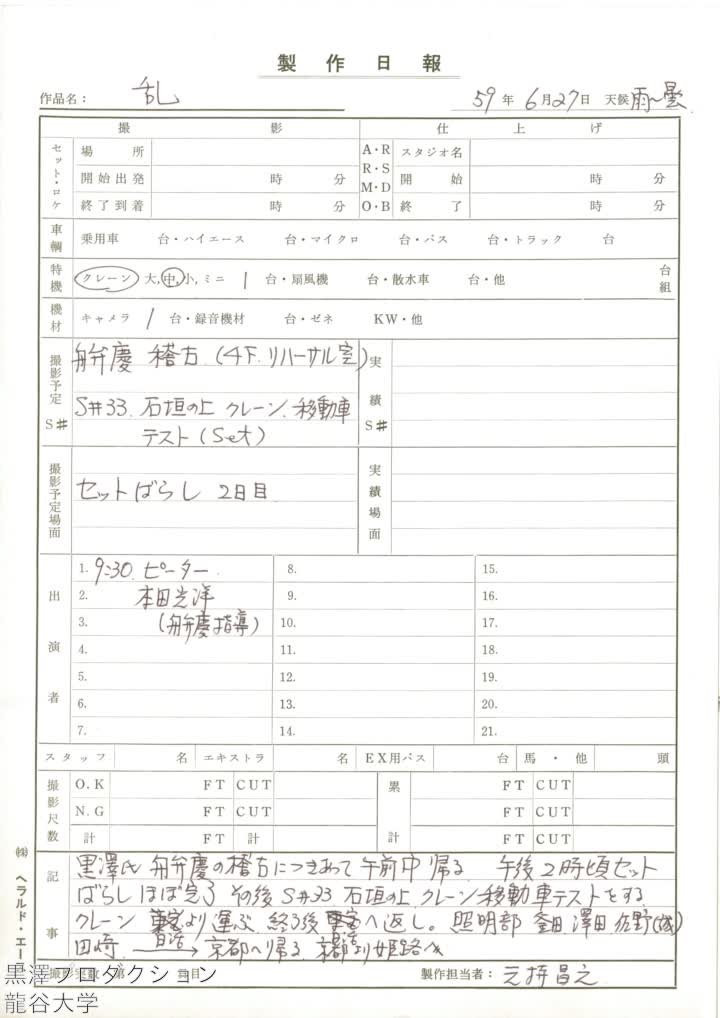 製作日報
作品名: 乱 59年 6月27日 天候 雨~曇
撮影 仕上げ
セット・ロケ 場所 A・R スタジオ名
開始出発 時 分 R・S M・D 開始 時 分
終了到着 時 分 O・B 終了 時 分
車輛 乗用車 台・ハイエース 台・マイクロ 台・バス 台・トラック 台
特機 クレーン 大,中,小,ミニ 1 台・扇風機 台・散水車 台・他 台 組
機材 キャメラ 1 台・録音機材 台・ゼネ KW・他
撮影予定 S# 舟弁慶 稽古 (4下.リハーサル室) 実績 S#
S#33. 石垣の上 クレーン、移動車
テスト (Set)
撮影予定場面 セットばらし 2日目 実績場面
出演者 1. 9:30. ピーター 8. 15.
2. 本田光洋 9. 16.
3. (舟弁慶指導) 10. 17.
4. 11. 18.
5. 12. 19.
6. 13. 20.
7. 14. 21.
スタッフ 名 エキストラ 名 EX用バス 台 馬・他 頭
撮影尺数 O.K FT CUT 累計 FT CUT
N.G FT CUT FT CUT
計 FT 計 FT CUT
記事 黒澤氏 舟弁慶の稽古につきあって午前中帰る. 午後2時頃セット
ばらしほぼ完了 その後S#33 石垣の上.クレーン移動車テストをする
クレーン 日活より運ぶ 終了後 へ返し。照明部 釜田 澤田 佐野(成)
田崎 → 京都へ帰る 京都より姫路へ
撮影実数 第 日目 製作担当者: 元持昌之
㈱ヘラルド・エー
黒澤プロダクション
龍谷大学